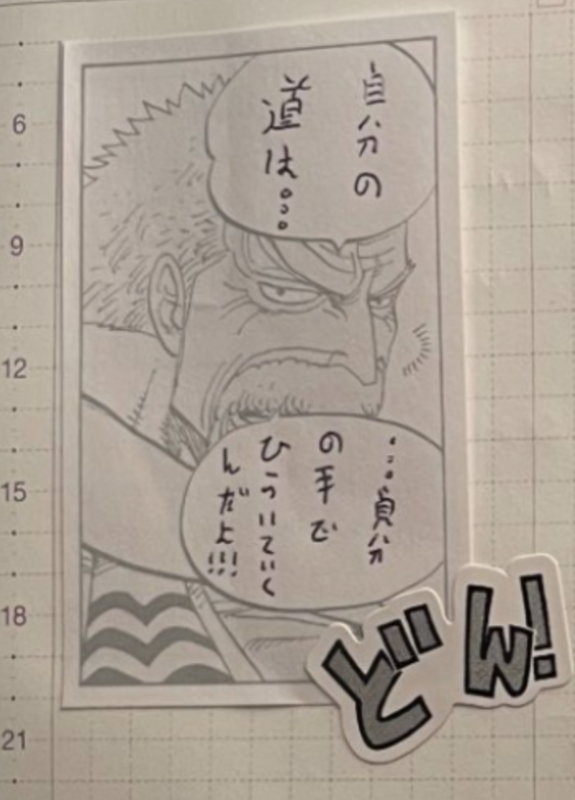 自分の
道は…
…自分
の手で
ひらいていく
んだよ!!!
どん!
6
9
12
15
18
21